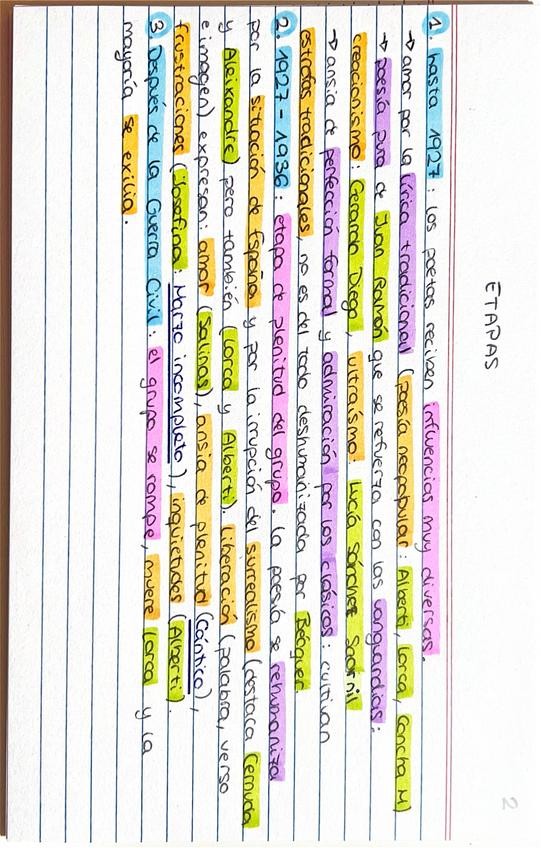 ETAPAS
2
1. hasta 1927: los poetas reciben influencias muy diversas.
→ amor por la lírica tradicional (poesía neopopular: Alberti, Lorca, Concha M)
→ poesía pura de Juan Ramón que se refuerza con las vanguardias:
creacionismo: Gerardo Diego, ultraísmo: Lucía Sánchez Saornil
→ ansia de perfección formal y admiración por los clásicos: cultivan
estrofas tradicionales, no es del todo deshumanizada por Bécquer
2. 1927 - 1936: etapa de plenitud del grupo. La poesía se rehumaniza
por la situación de España y por la irrupción del surrealismo (destaca Cernuda
y Aleixandre) pero también (Lorca y Alberti). Liberación (palabra, verso
e imagen) expresan: amor (Salinas), ansia de plenitud (Cántico),
frustraciones (Josefina: Marzo incompleto), inquietudes (Alberti).
3. Después de la Guerra Civil: el grupo se rompe, muere Lorca y la
mayoría se exilia.